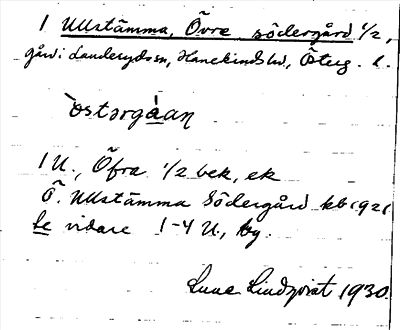 1 Ullstämma, Övre södergård 1/2,
gård i Landerydssn, Hanekinds hd, Östug. l.
òstərgå̀an
1 U., Öfra 1/2 bek, ek
Ö. Ullstämma Södergård kb 1921
Se vidare 1-4 U., by.
Sune Lindqvist 1930.